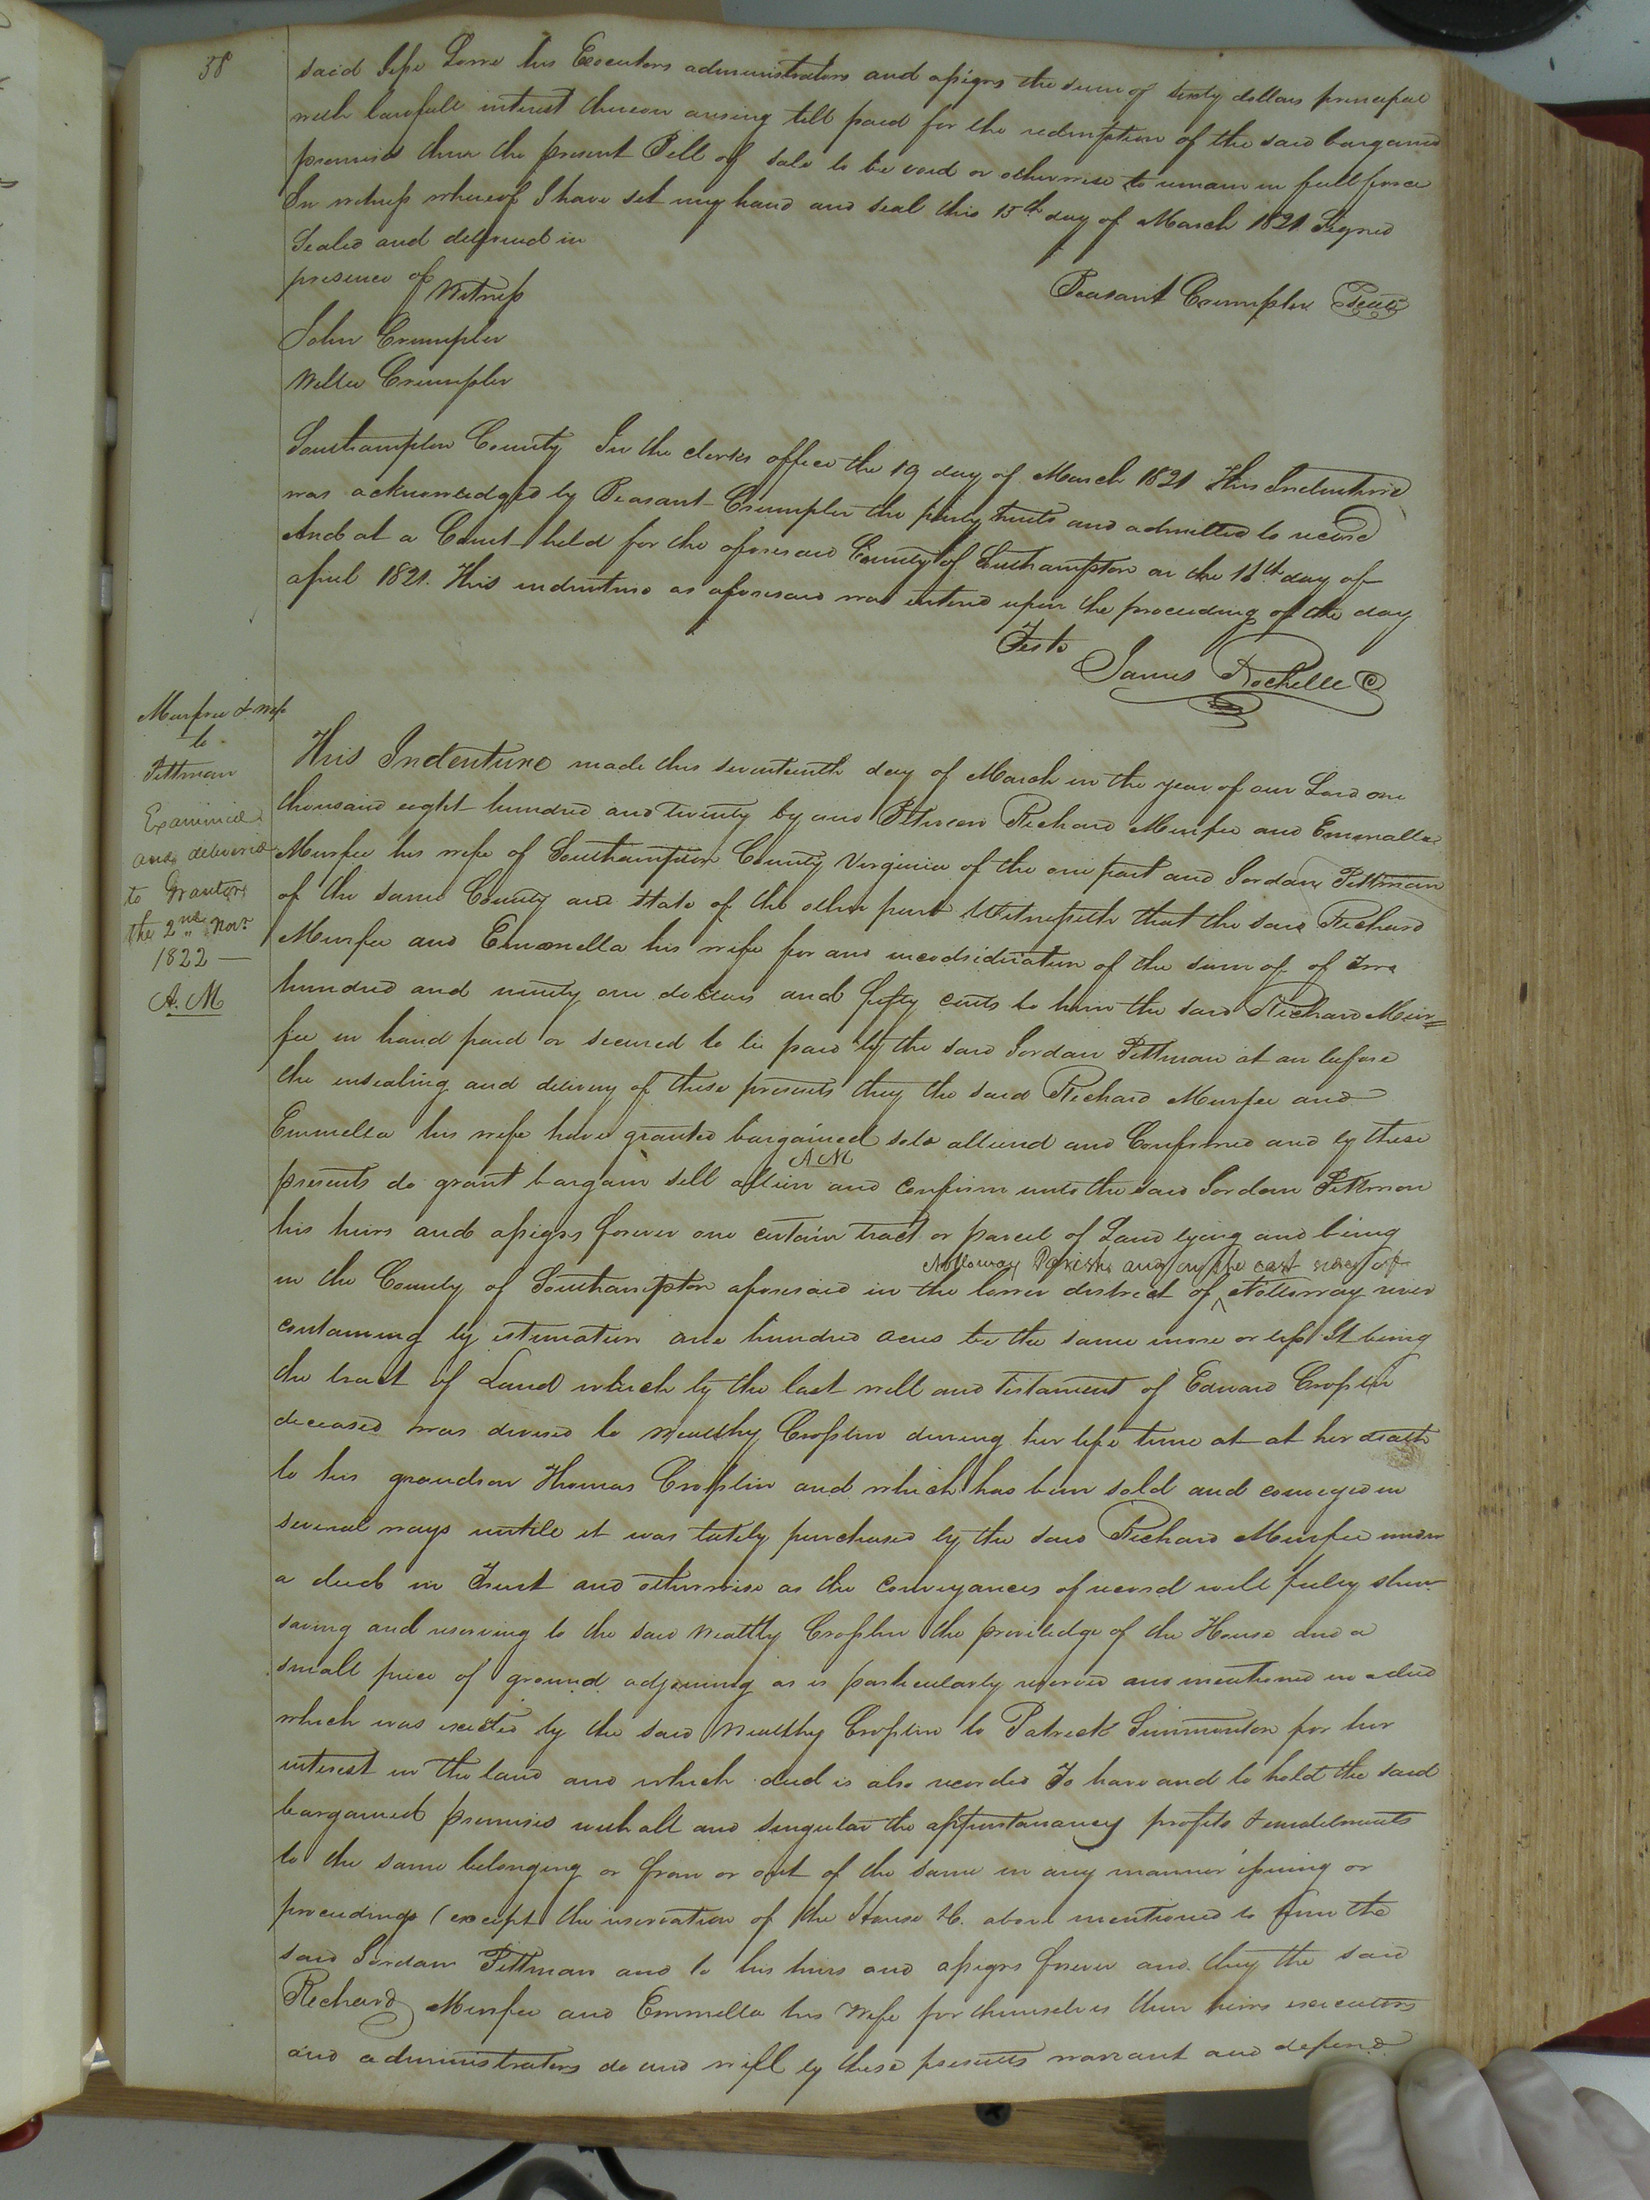 38
said Jesse Lorre his Executors administrators and assigns the sum of sixty dollars principal
with lawfull interest thereon arising till paid for the redemption of the said bargained
premises then the present Bill of Sale to be void or otherwise to remain in full force
In witness whereof I have set my hand and seal this 15th day of March 1821 Signed
Sealed and delivered in
presence of Witness
Peasant Crumpler Seal
John Crumpler
Willie Crumpler
Southampton County In the clerks office the 19 day of March 1821 This Indenture
was acknowledged by Peasant Crumpler the party thereto and admitted to record
And at a Court held for the aforesaid County of Southampton on the 16th day of
april 1821. This indenture as aforesaid was entered upon the proceeding of the day
Teste
James Rochelle C
Murfree & wife
to
Pittman
Examined
and delivered
to Grantor
the 2nd Novr
1822 —
A. M
This Indenture made this seventeenth day of March in the year of our Lord one
thousand eight hundred and twenty by and Between Richard Murfee and Emmella
Murfee his wife of Southampton County Virginia of the one part and Jordan Pittman
of the same County and State of the other part Witnesseth that the said Richard
Murfee and Emmella his wife for and inconsideration of the sum of of Two
hundred and ninety one dollars and fifty cents to him the said Richard Mur=
fee in hand paid or secured to be paid by the said Jordan Pittman at an before
the ensealing and delivery of these presents they the said Richard Murfee and
Emmella his wife have granted bargained sold aliend and Confirmed and by these
A M
presents do grant bargain sell alien and confirm unto the said Jordan Pittman
his heirs and assigns forever one certain tract or parcel of Land lying and being
Nottoway Parish and on the east side of
in the County of Southampton aforesaid in the lower district of ^ Nottoway river
containing by estimation one hundred acres be the same more or less It being
the tract of Land which by the last will and testament of Edward Croplin
deceased was devised to Wealthy Croplin during her life time at at her death
to his grandson Thomas Croplin and which has been sold and conveyed in
several ways untile it was lately purchased by the said Richard Murfee under
a deed in Trust and otherwise as the Conveyances of record will fuley shew
saving and reserving to the said Wealthy Croplin the priviledge of the House and a
small piece of ground adjoining as is particularly reserved and mentioned in a deed
which was exected by the said Wealthy Croplin to Patrick Simmonton for her
interest in the land and which deed is also recorded To have and to hold the said
bargained premises with all and singular the appurtanancy profits & emoluments
to the same belonging or from or out of the same in any manner issuing or
proceedings (except the reservation of the House &c. above mentioned to him the
said Jordan Pittman and to his heirs and assigns forever and they the said
Richard Murfee and Emmella his Wife for themselves their heirs executors
and administrators do and will by these presents warrant and defend